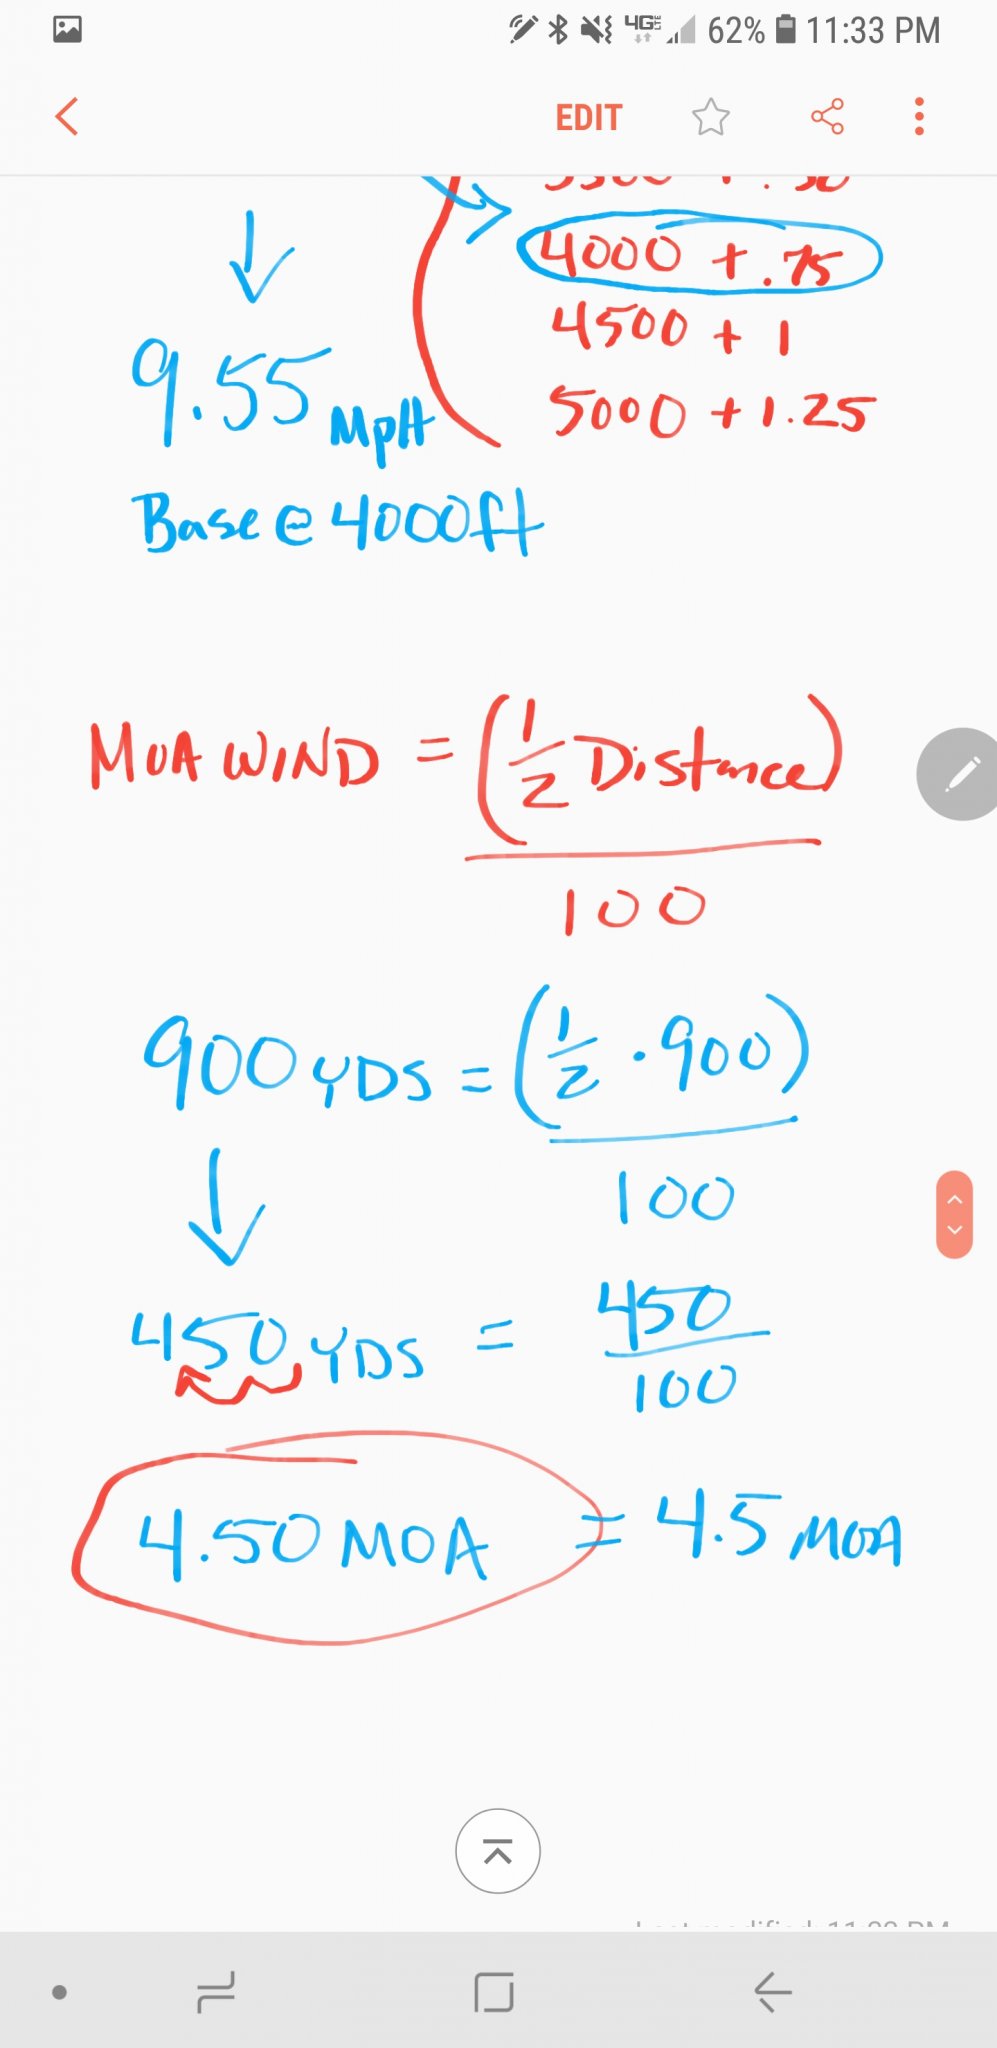 62% 11:33 PM
EDIT
4000 + .75
4500 + 1
5000 + 1.25
9.55 MpH
Base @ 4000ft
MOA WIND = (1/2 Distance)
100
900 YDS = (1/2 · 900)
100
450 YDS = 450
100
4.50 MOA = 4.5 MOA